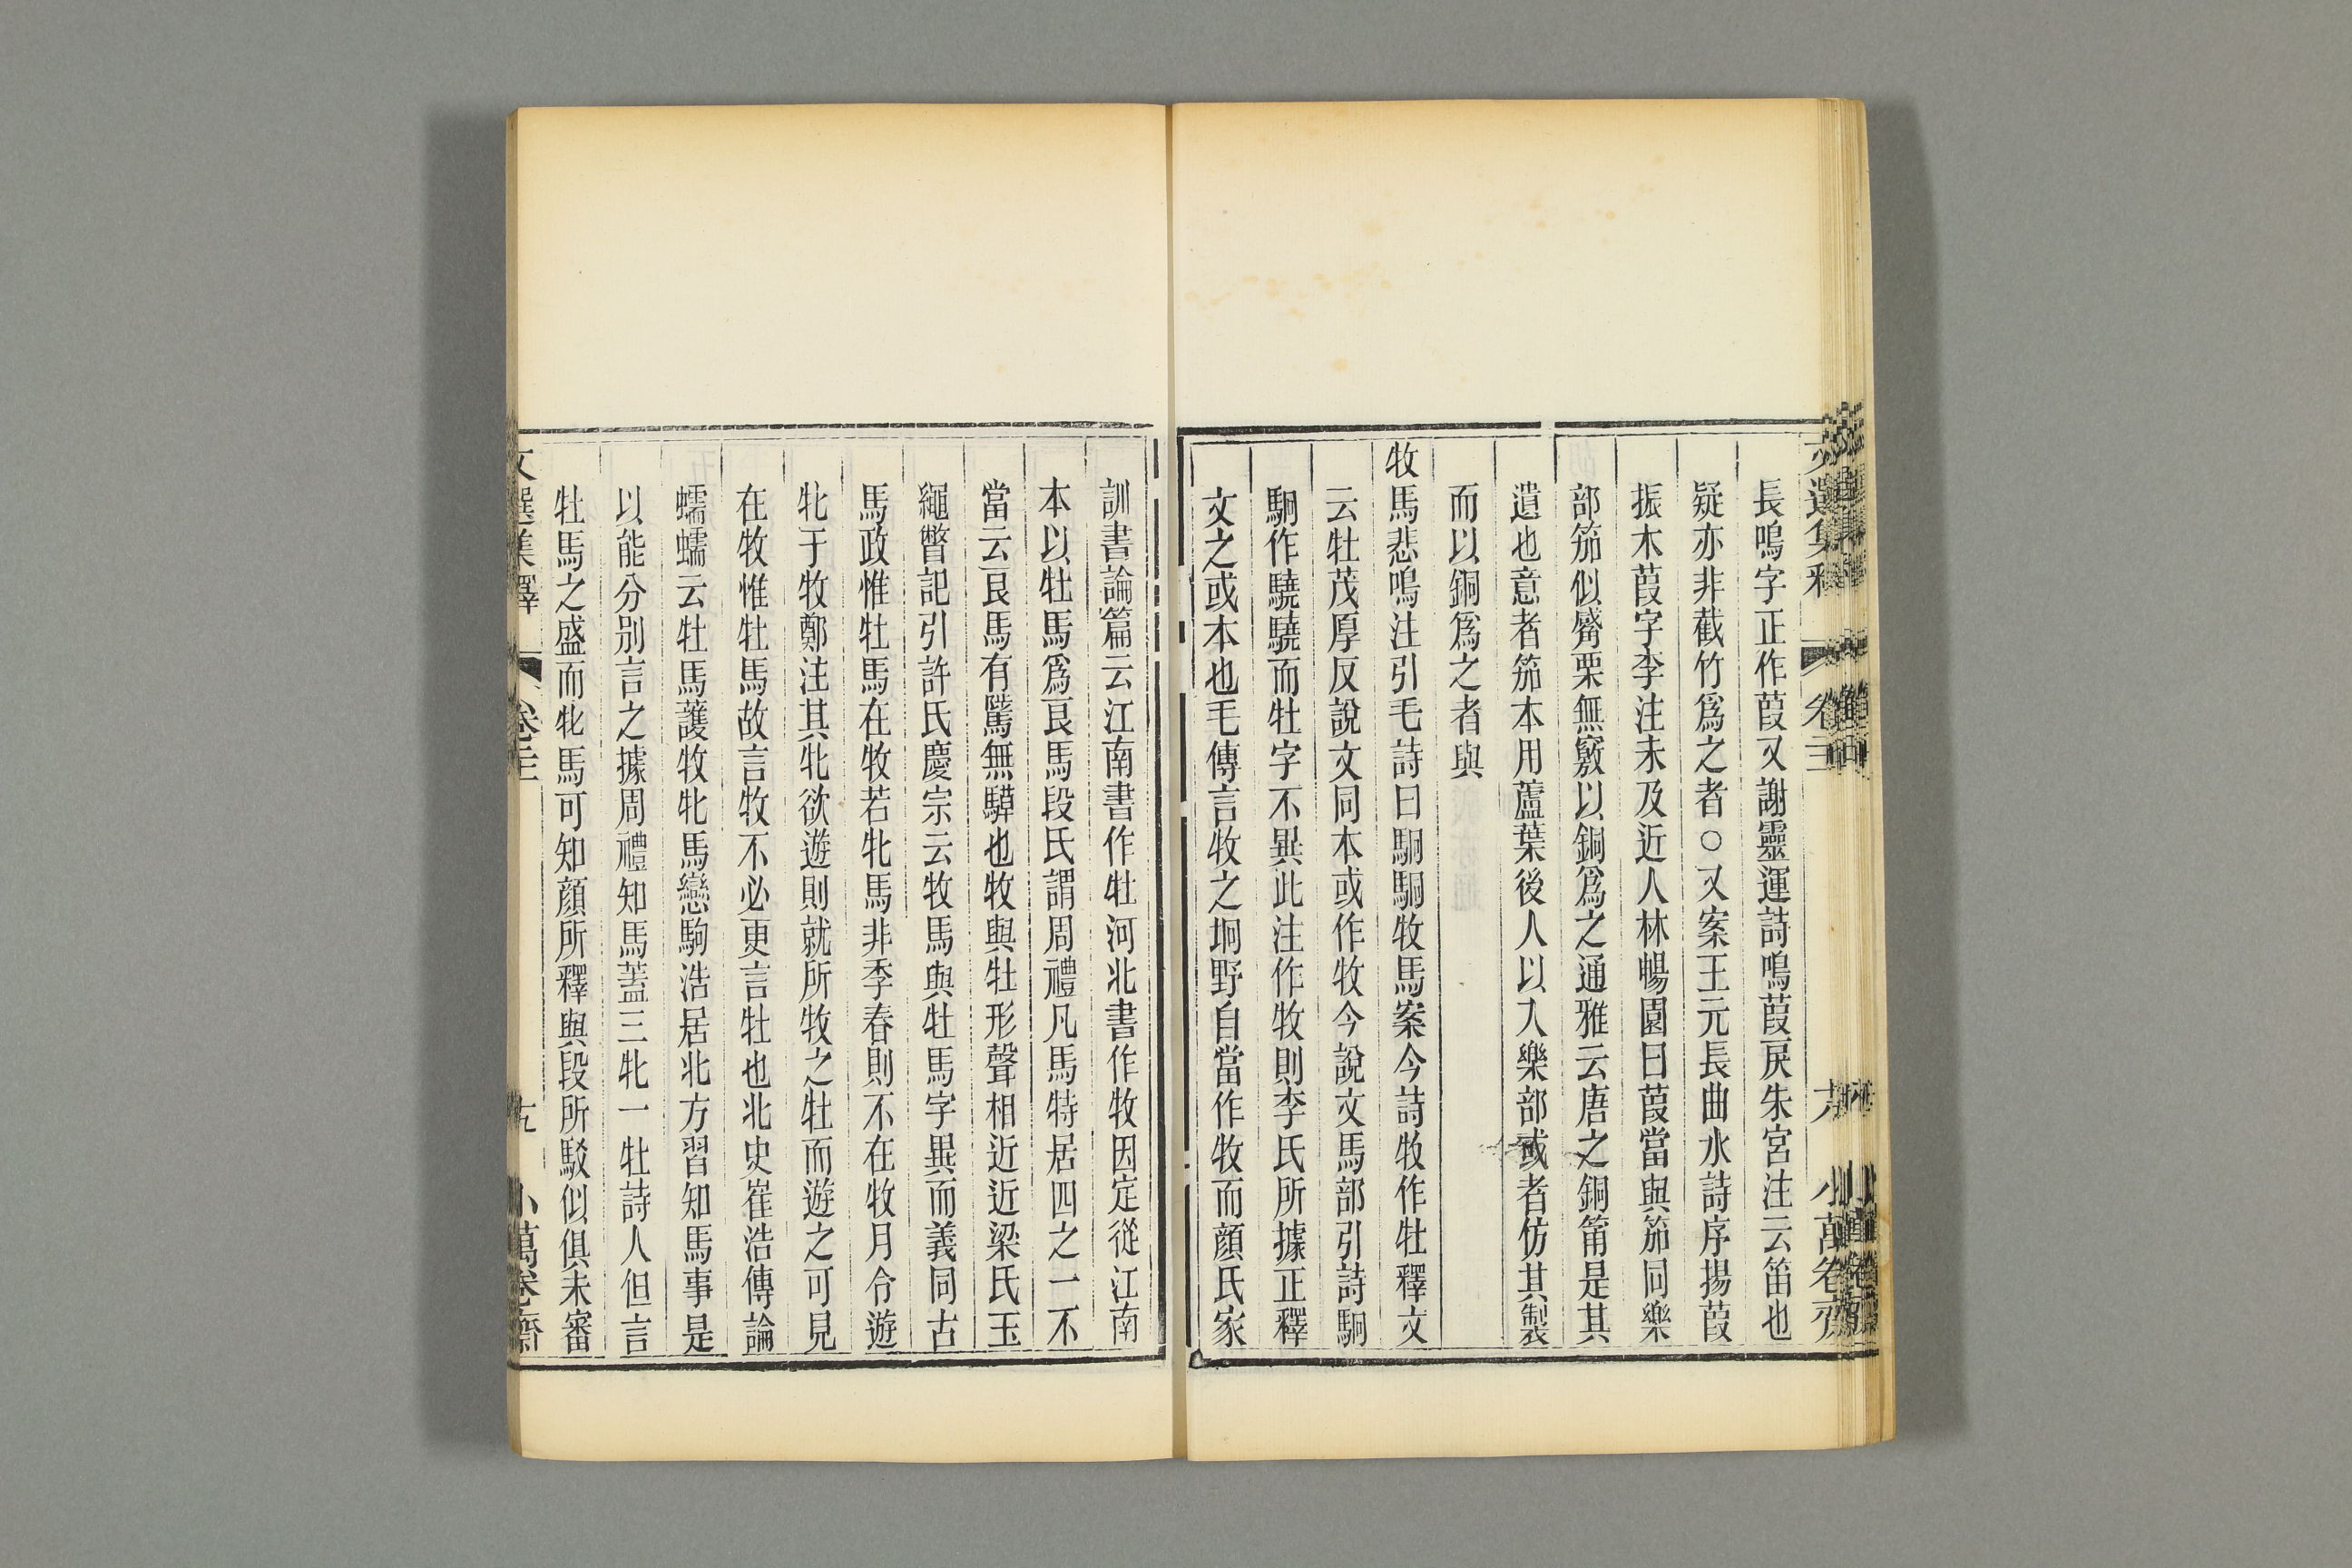 長鳴字正作葭又謝靈運詩鳴葭戾朱宮注云笛也
疑亦非截竹爲之者○又案王元長曲水詩序揚葭
振木葭字李注未及近人林暢園曰葭當與笳同樂
部笳似觱栗無竅以銅爲之通雅云唐之銅筩是其
遺也意者笳本用蘆葉後人以入樂部或者仿其製
而以銅爲之者與
牧馬悲鳴注引毛詩曰駉駉牧馬案今詩牧作牡釋文
云牡茂厚反說文同本或作牧今說文馬部引詩駉
駉作驍驍而牡字不異此注作牧則李氏所據正釋
文之或本也毛傳言牧之坰野自當作牧而顏氏家
訓書論篇云江南書作牡河北書作牧因定從江南
本以牡馬爲良馬段氏謂周禮凡馬特居四之一不
當云良馬有騭無騲也牧與牡形聲相近近梁氏玉
繩瞥記引許氏慶宗云牧馬與牡馬字異而義同古
馬政惟牡馬在牧若牝馬非季春則不在牧月令遊
牝于牧鄭注其牝欲遊則就所牧之牡而遊之可見
在牧惟牡馬故言牧不必更言牡也北史崔浩傳論
蠕蠕云牡馬護牧牝馬戀駒浩居北方習知馬事是
以能分別言之據周禮知馬蓋三牝一牡詩人但言
牡馬之盛而牝馬可知顏所釋與段所駁似俱未審
文選集釋
小萬卷齋